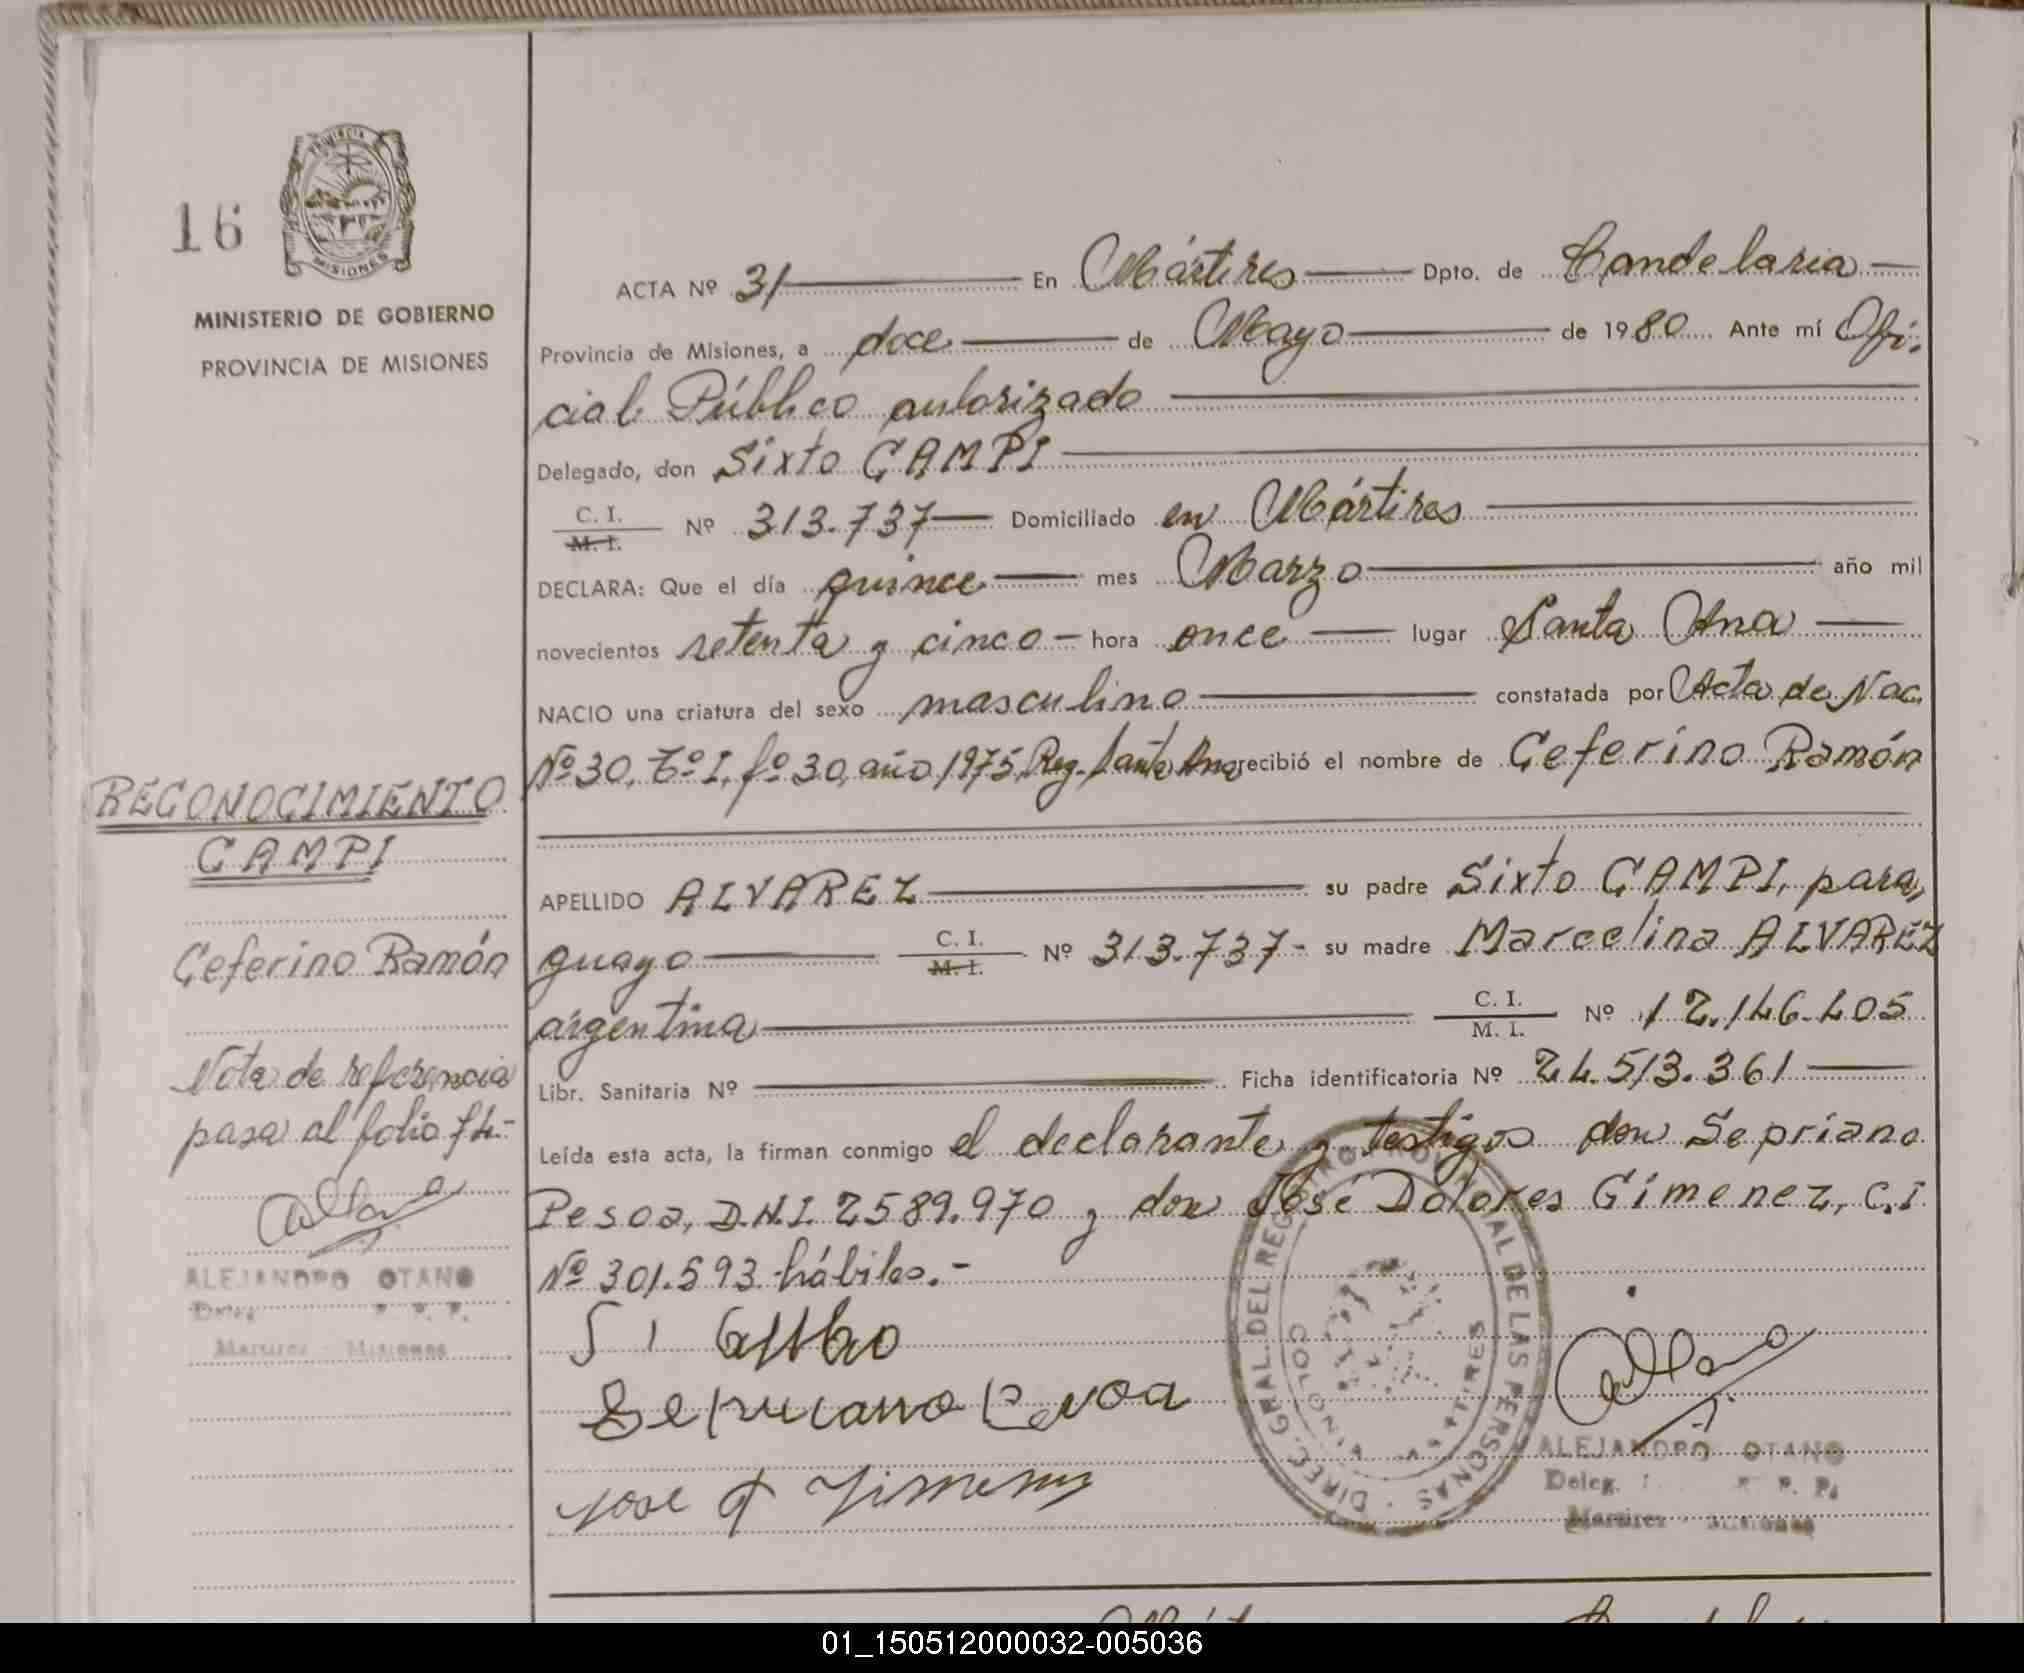 16
PROVINCIA
MISIONES
MINISTERIO DE GOBIERNO
PROVINCIA DE MISIONES
ACTA Nº 31 En Mártires Dpto. de Candelaria
Provincia de Misiones, a doce de Mayo de 1980 Ante mí Ofi-
cial Público autorizado
Delegado, don Sixto CAMPI
C. I.
M. I. Nº 313.737 Domiciliado en Mártires
DECLARA: Que el día quince mes Marzo año mil
novecientos setenta y cinco - hora once lugar Santa Ana
NACIO una criatura del sexo masculino constatada por Acta de Nac.
Nº 30, Tº I, fº 30, año 1975, Reg. Santa Ana recibió el nombre de Ceferino Ramón
APELLIDO ALVAREZ su padre Sixto CAMPI, para,
guayo C. I. M. I. Nº 313.737- su madre Marcelina ALVAREZ
argentina C. I. M. I. Nº 12.146.405
Libr. Sanitaria Nº Ficha identificatoria Nº 24.513.361
Leída esta acta, la firman conmigo el declarante y testigos don Sepriano
Pesoa, D.N.I. 2589.970 y don José Dolores Gimenez, C.I.
Nº 301.593 hábiles.-
RECONOCIMIENTO
CAMPI
Ceferino Ramón
Nota de referencia
pasa al folio 74.-
ALEJANDRO OTANO
Deleg. R. P. P.
Martires - Misiones
Sepriano Pesoa
Jose D Jimenez
DIREC. GRAL. DEL REGISTRO PROVINCIAL DE LAS PERSONAS
COLONIA MARTIRES
ALEJANDRO OTANO
Deleg. R. P. P.
Martires - Misiones
01_150512000032-005036